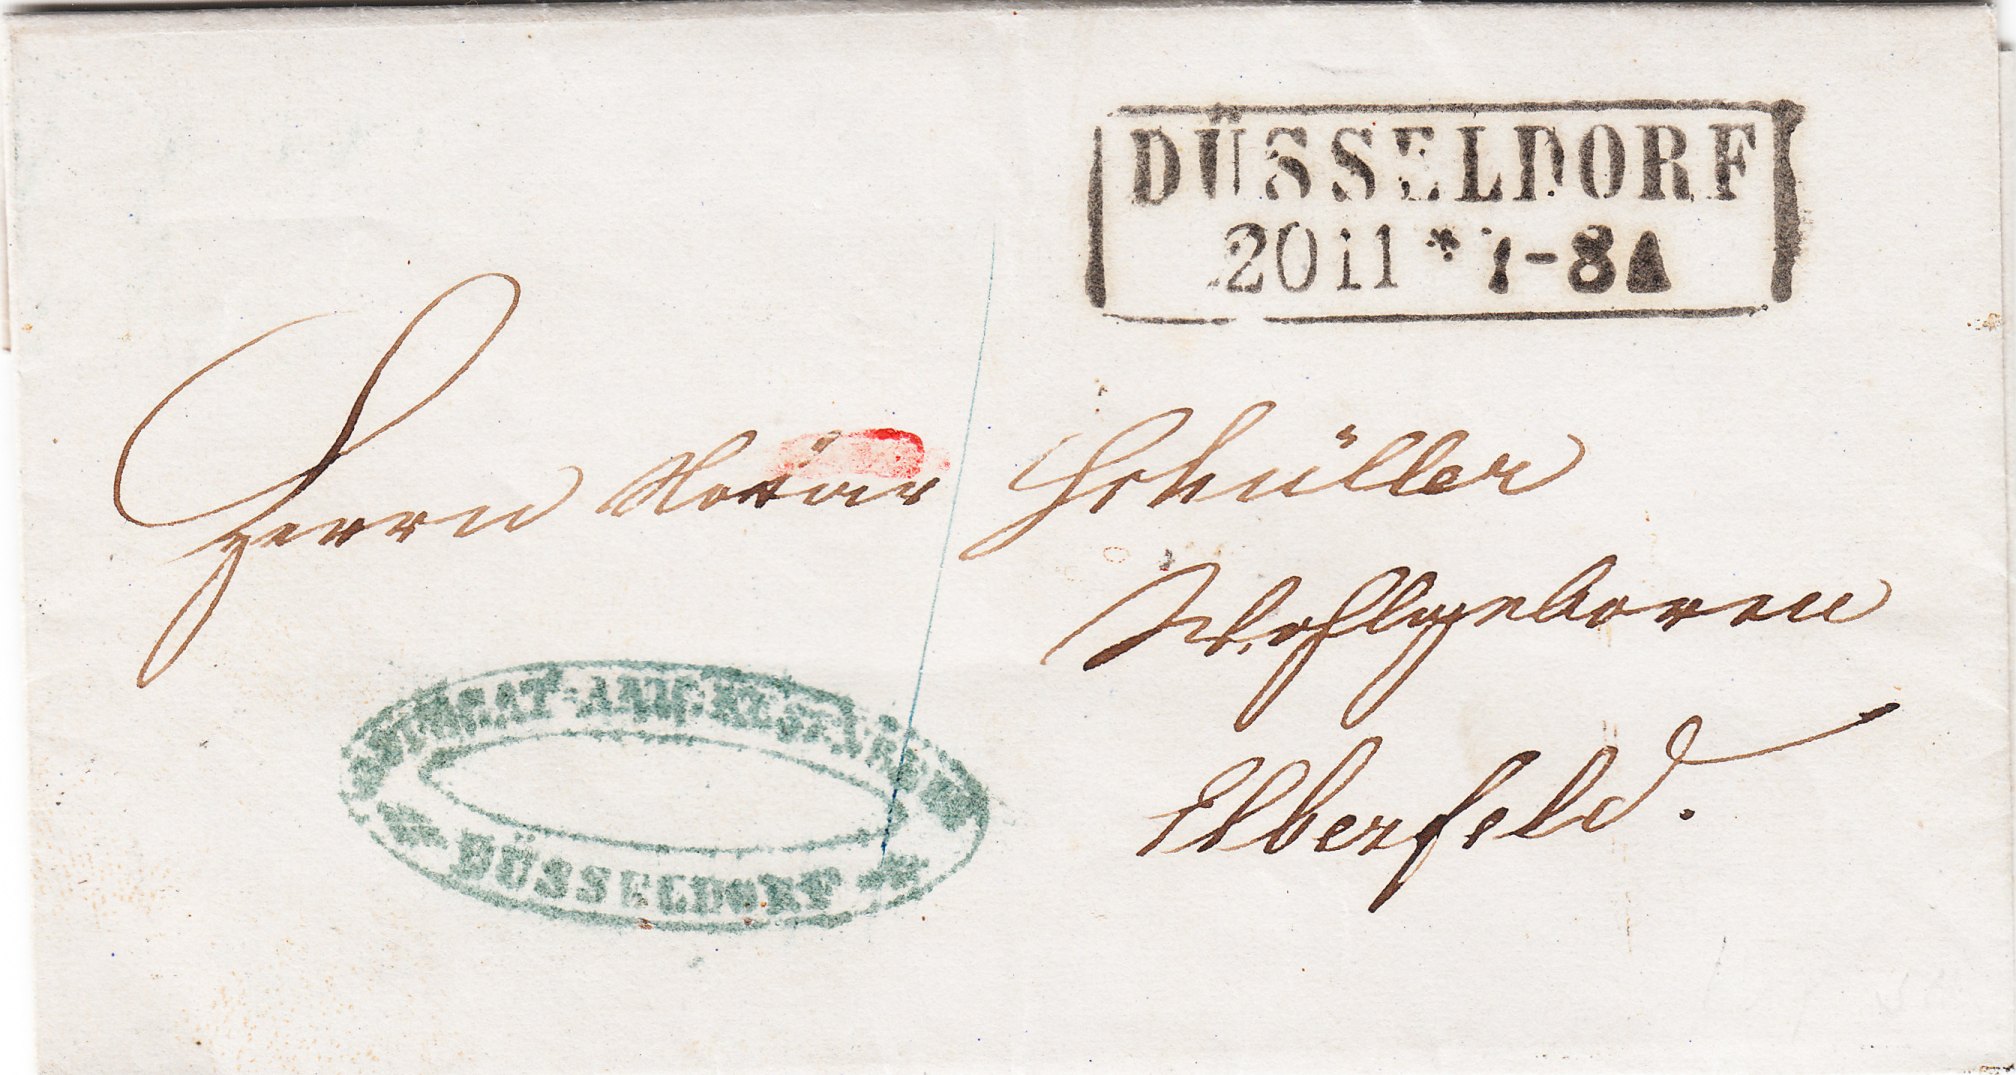 DÜSSELDORF
20 11 * 7-8A
Herrn Notar Schüller
Wohlgeboren
Elberfeld.
ADVOCAT-ANW:
* DÜSSELDORF *